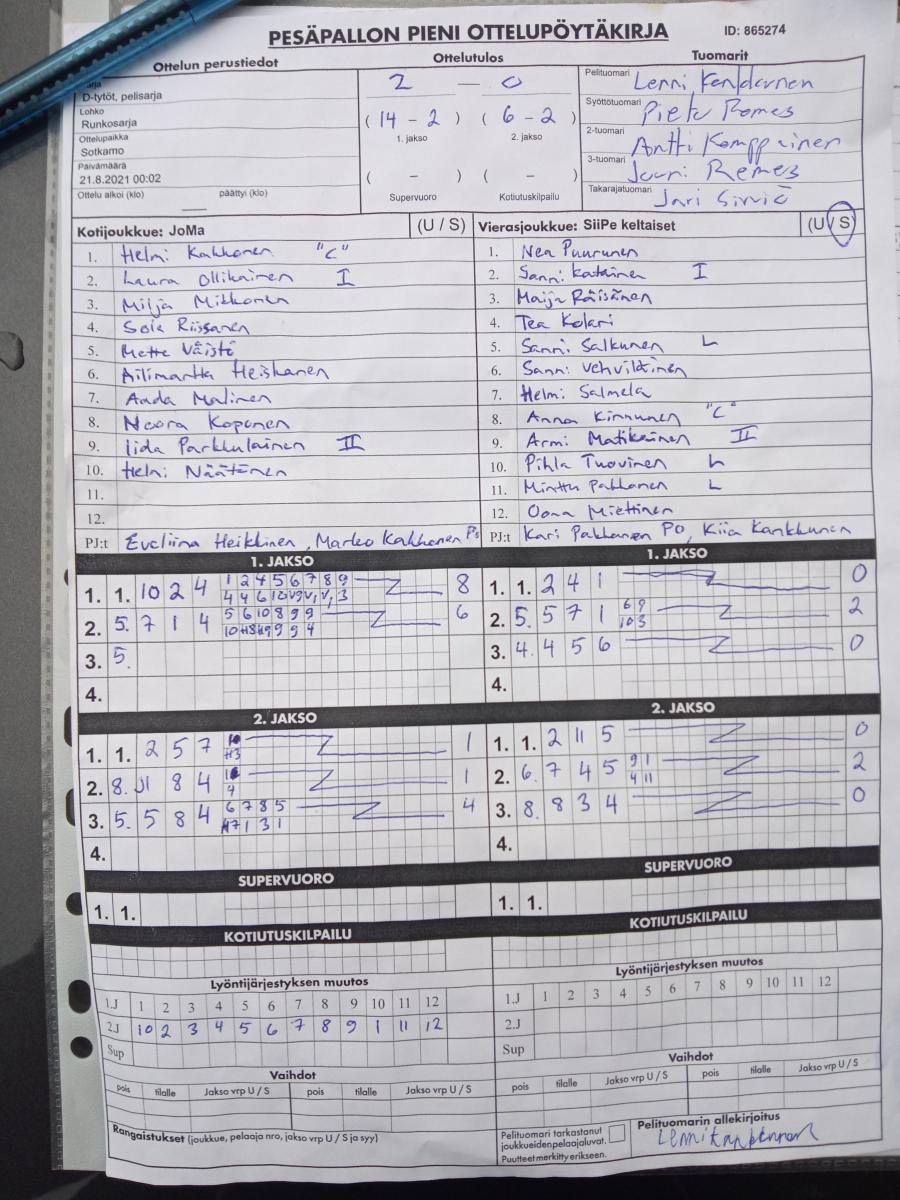 PESÄPALLON PIENI OTTELUPÖYTÄKIRJA ID: 865274
Ottelun perustiedot Ottelutulos Tuomarit
D-tytöt, pelisarja
Lohko
Runkosarja
Ottelupaikka
Sotkamo
Päivämäärä
21.8.2021 00:02
Ottelu alkoi (klo) päättyi (klo)
2 — 0
( 14 - 2 ) ( 6 - 2 )
1. jakso 2. jakso
( - ) ( - )
Supervuoro Kotiutuskilpailu
Pelituomari Lenni
Syöttötuomari Remes
2-tuomari Antti Komppainen
3-tuomari Remes
Takarajatuomari Jari Sirviö
Kotijoukkue: JoMa (U / S)
1. Helmi Kakkonen "C"
2. Laura Ollikainen I
3. Milja Mikkonen
4. Riissanen
5. Mette Väistö
6. Ailimartta Heiskanen
7. Aada Malinen
8. Noora Koponen
9. Iida Parkkulainen II
10. Helmi Näätänen
11.
12.
PJ:t Eveliina Heikkinen, Marko Kakkonen
Vierasjoukkue: SiiPe keltaiset (U / S)
1. Nea Puurunen
2. Sanni Katainen I
3. Maija Räisänen
4. Tea Kolari
5. Sanni Salkunen L
6. Sanni Vehviläinen
7. Helmi Salmela
8. Anna Kinnunen "C"
9. Armi Matikainen II
10. Pihla Tuovinen L
11. Minttu Pakkanen L
12. Oona Miettinen
PJ:t Kari Pakkanen PO, Kiia Kankkunen
1. JAKSO
1. 1. 10 2 4 1 2 4 5 6 7 8 9 8
4 4 6 10 3
2. 5. 7 1 4 5 6 10 8 9 9 6
9 9 4
3. 5.
4.
1. JAKSO
1. 1. 2 4 1 0
2. 5. 5 7 1 6 9 2
10 3
3. 4. 4 5 6 0
4.
2. JAKSO
1. 1. 2 5 7 1
2. 8. 8 4 1
4
3. 5. 5 8 4 6 7 8 5 4
1 3 1
4.
2. JAKSO
1. 1. 2 11 5 0
2. 6. 7 4 5 9 1 2
4 11
3. 8. 8 3 4 0
4.
SUPERVUORO
1. 1.
SUPERVUORO
1. 1.
KOTIUTUSKILPAILU
KOTIUTUSKILPAILU
Lyöntijärjestyksen muutos
1.J 1 2 3 4 5 6 7 8 9 10 11 12
2.J 10 2 3 4 5 6 7 8 9 1 11 12
Sup
Lyöntijärjestyksen muutos
1.J 1 2 3 4 5 6 7 8 9 10 11 12
2.J
Sup
Vaihdot
pois tilalle Jakso vrp U / S pois tilalle Jakso vrp U / S
Vaihdot
pois tilalle Jakso vrp U / S pois tilalle Jakso vrp U / S
Rangaistukset (joukkue, pelaaja nro, jakso vrp U / S ja syy)
Pelituomari tarkastanut
joukkueiden pelaajaluvat.
Puutteet merkitty erikseen.
Pelituomarin allekirjoitus